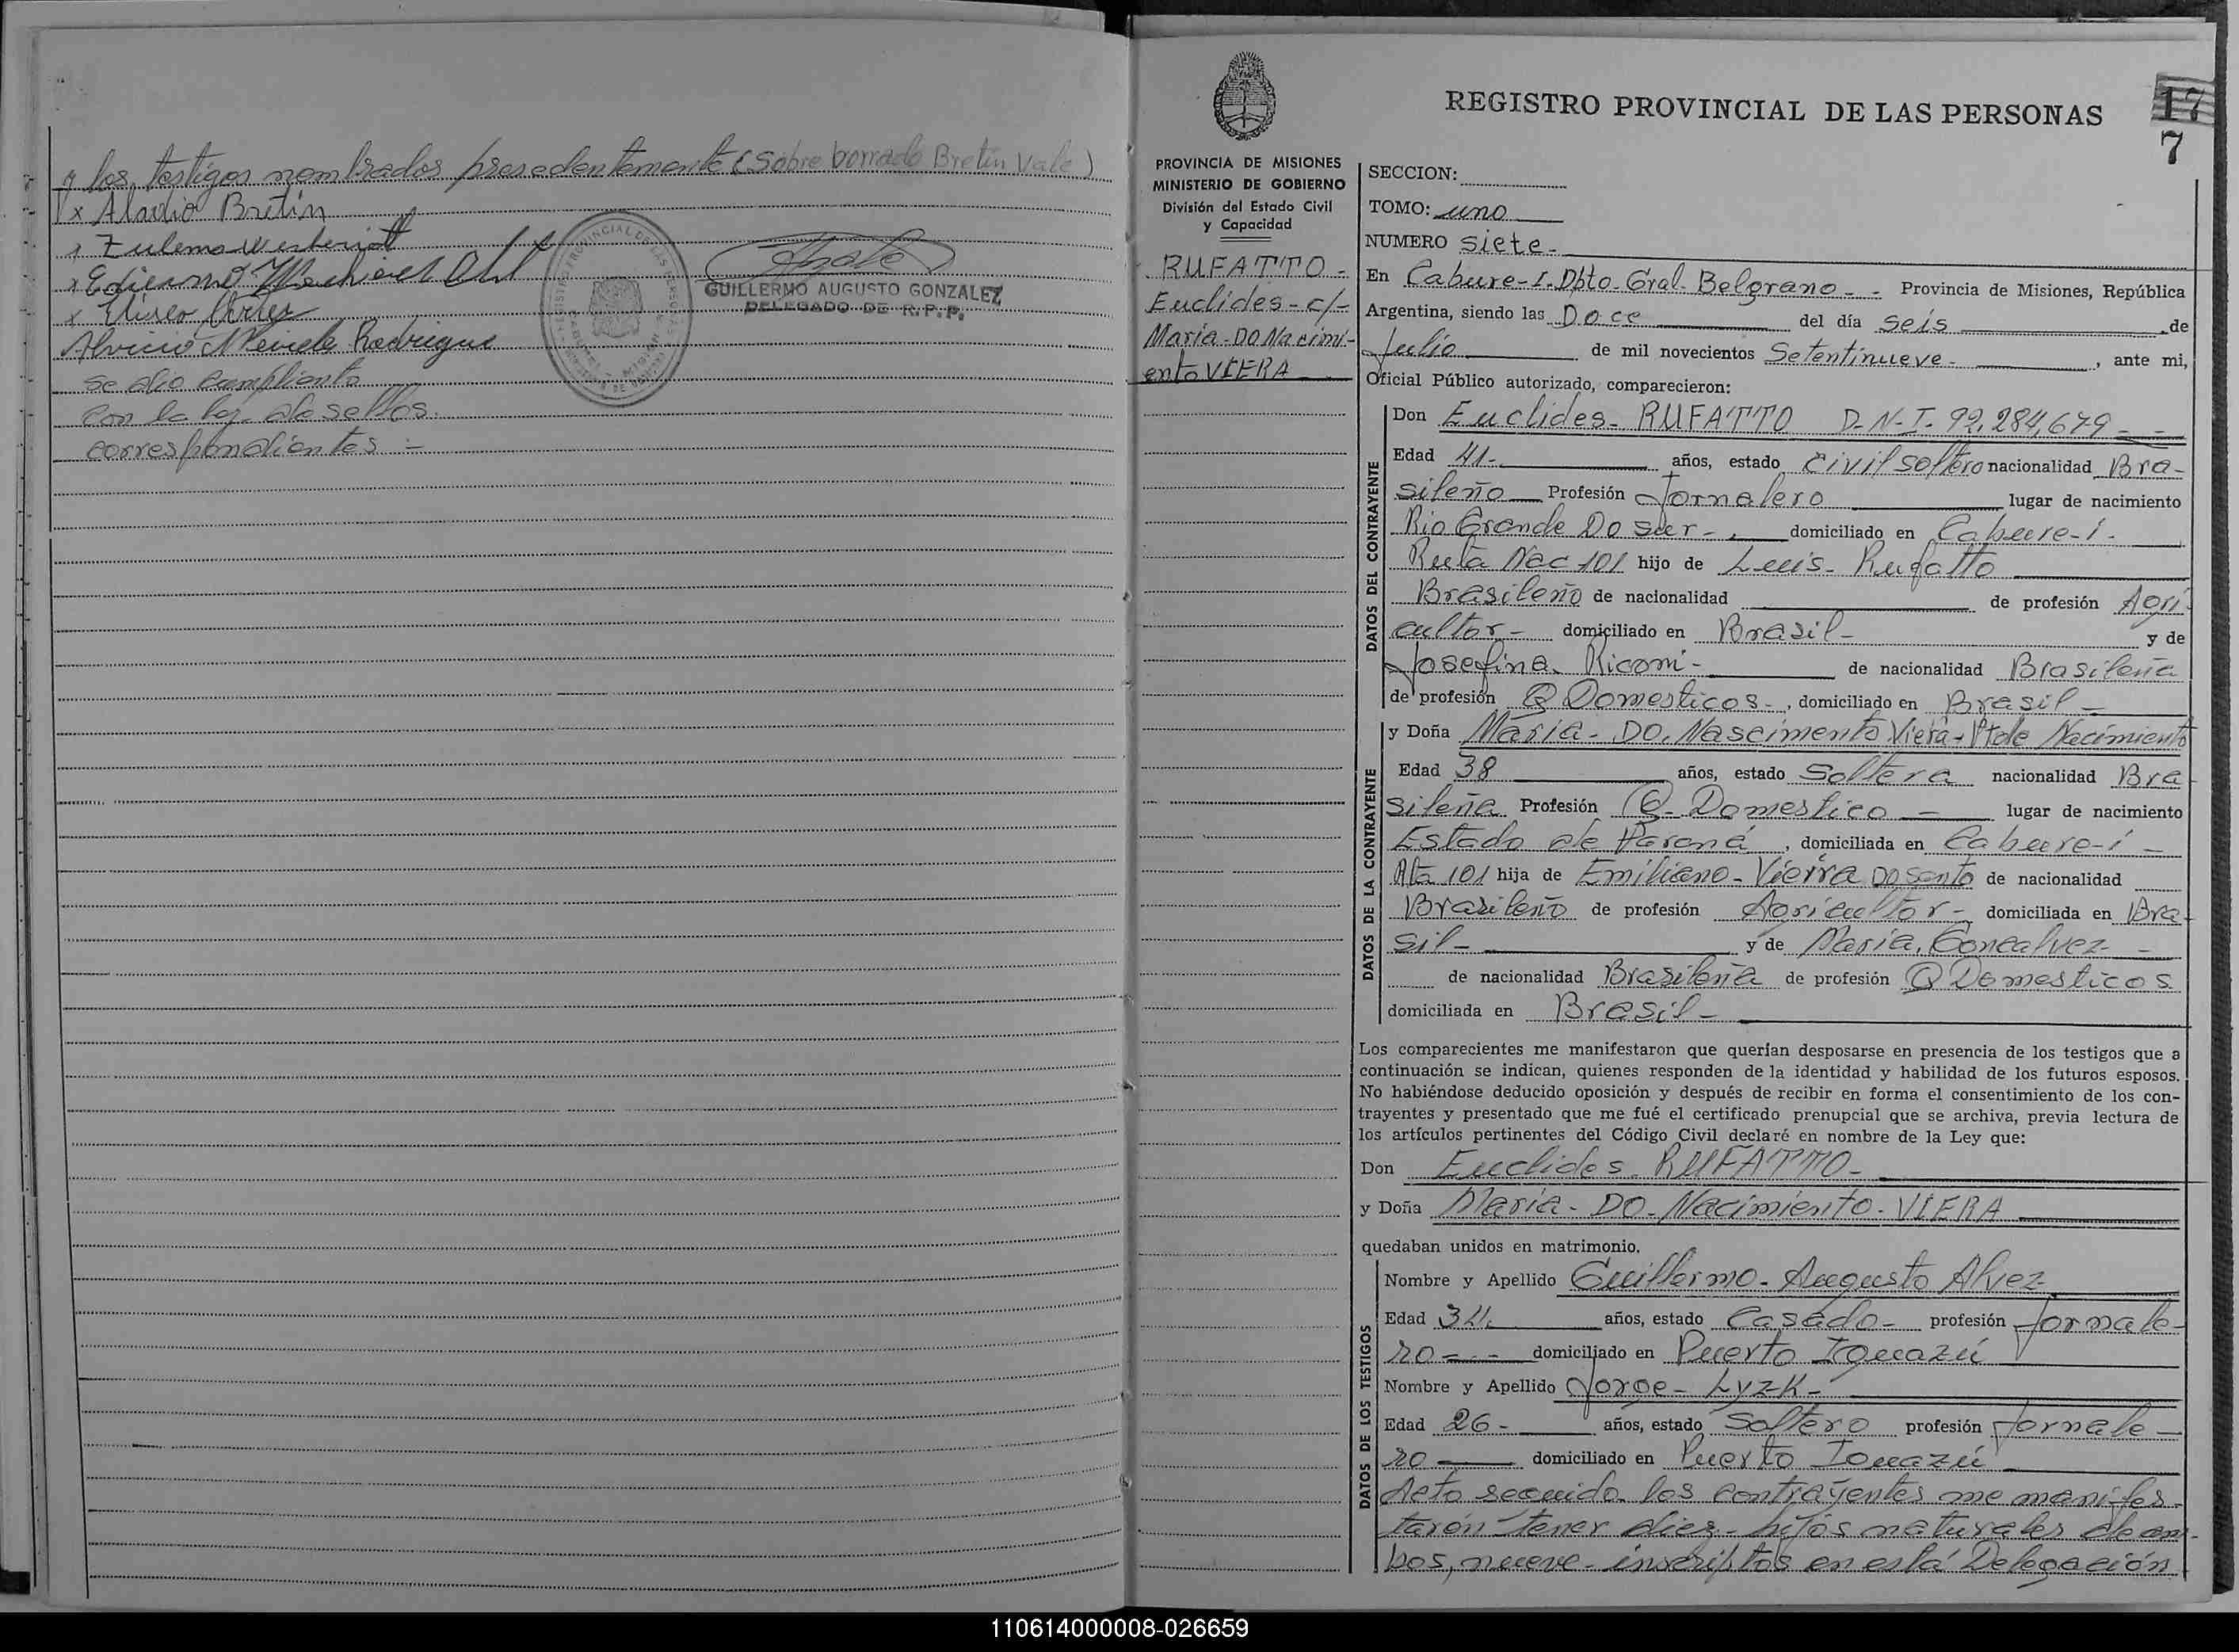 y los testigos nombrados presedentemente (Sobre borrado Bretin Vale)
x Aladio Bretin
x Zulema
x
x Eliseo
Alvicio Rodrigue
se dio cumplimento
con la ley de sellos
correspondientes :-
GUILLERMO AUGUSTO GONZALEZ
DELEGADO DE R.P.P.
REGISTRO PROVINCIAL DE LAS PERSONAS
17
7
PROVINCIA DE MISIONES
MINISTERIO DE GOBIERNO
División del Estado Civil
y Capacidad
RUFATTO -
Euclides - c/-
María - DO Nacimi-
ento VIERA
SECCION:
TOMO: uno
NUMERO siete -
En Cabure-I. Dpto. Gral. Belgrano - - Provincia de Misiones, República
Argentina, siendo las Doce del día seis de
Julio de mil novecientos Setentinueve - , ante mi,
Oficial Público autorizado, comparecieron:
DATOS DEL CONTRAYENTE
Don Euclides - RUFATTO D-N-I- 92.284.679 - -
Edad 41- años, estado civil soltero nacionalidad Bra-
sileño Profesión Jornalero lugar de nacimiento
Rio Grande Do sur - domiciliado en Cabure-í -
Ruta Nac 101 hijo de Luis - Rufatto
Brasileño de nacionalidad de profesión Agri-
cultor - domiciliado en Brasil - y de
Josefina Riconi - de nacionalidad Brasileña
de profesión Q Domesticos - , domiciliado en Brasil -
DATOS DE LA CONTRAYENTE
y Doña María - DO. Nascimento Viera - Nacimiento
Edad 38 años, estado Soltera nacionalidad Bra-
sileña Profesión Q - Domestico - lugar de nacimiento
Estado de Paraná , domiciliada en Cabure-í -
Rta 101 hija de Emiliano - Vieira DO Santo de nacionalidad
Brasileño de profesión Agricultor - domiciliada en Bra-
sil - y de María. Goncalvez - -
de nacionalidad Brasileña de profesión Q Domesticos
domiciliada en Brasil -
Los comparecientes me manifestaron que querían desposarse en presencia de los testigos que a
continuación se indican, quienes responden de la identidad y habilidad de los futuros esposos.
No habiéndose deducido oposición y después de recibir en forma el consentimiento de los con-
trayentes y presentado que me fué el certificado prenupcial que se archiva, previa lectura de
los artículos pertinentes del Código Civil declaré en nombre de la Ley que:
Don Euclides - RUFATTO -
y Doña María - DO - Nacimiento - VIERA
quedaban unidos en matrimonio.
DATOS DE LOS TESTIGOS
Nombre y Apellido Guillermo - Augusto Alvez
Edad 34 años, estado Casado - profesión Jornale-
ro - - - domiciliado en Puerto Iguazú
Nombre y Apellido Jorge - Lyzk -
Edad 26 - años, estado Soltero profesión Jornale-
ro domiciliado en Puerto Iguazú
Acto seguido los contrayentes me manifes-
tarón tener diez - hijos naturales de am-
bos, nueve - inscriptos en está Delegación
110614000008-026659